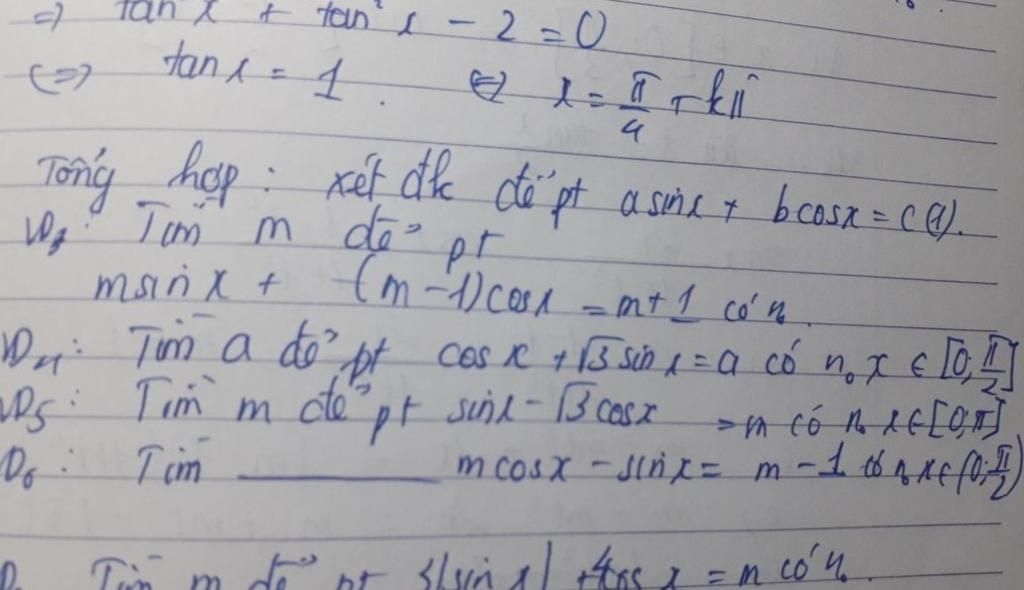 => tan x + tan² x - 2 = 0
<=> tan x = 1. <=> x = π/4 + kπ
Tổng hợp: xét đk để pt a sin x + b cos x = c (1).
VD3: Tìm m để pt
m sin x + (m - 1) cos x = m + 1 có n0.
VD4: Tìm a để pt cos x + √3 sin x = a có n0 x ∈ [0; π/2]
VD5: Tìm m để pt sin x - √3 cos x = m có n0 x ∈ [0; π]
D6: Tìm ________ m cos x - sin x = m - 1 có n0 x ∈ (0; π/2)
Tìm m để pt 3|sin x| + 4cos x = m có n0.